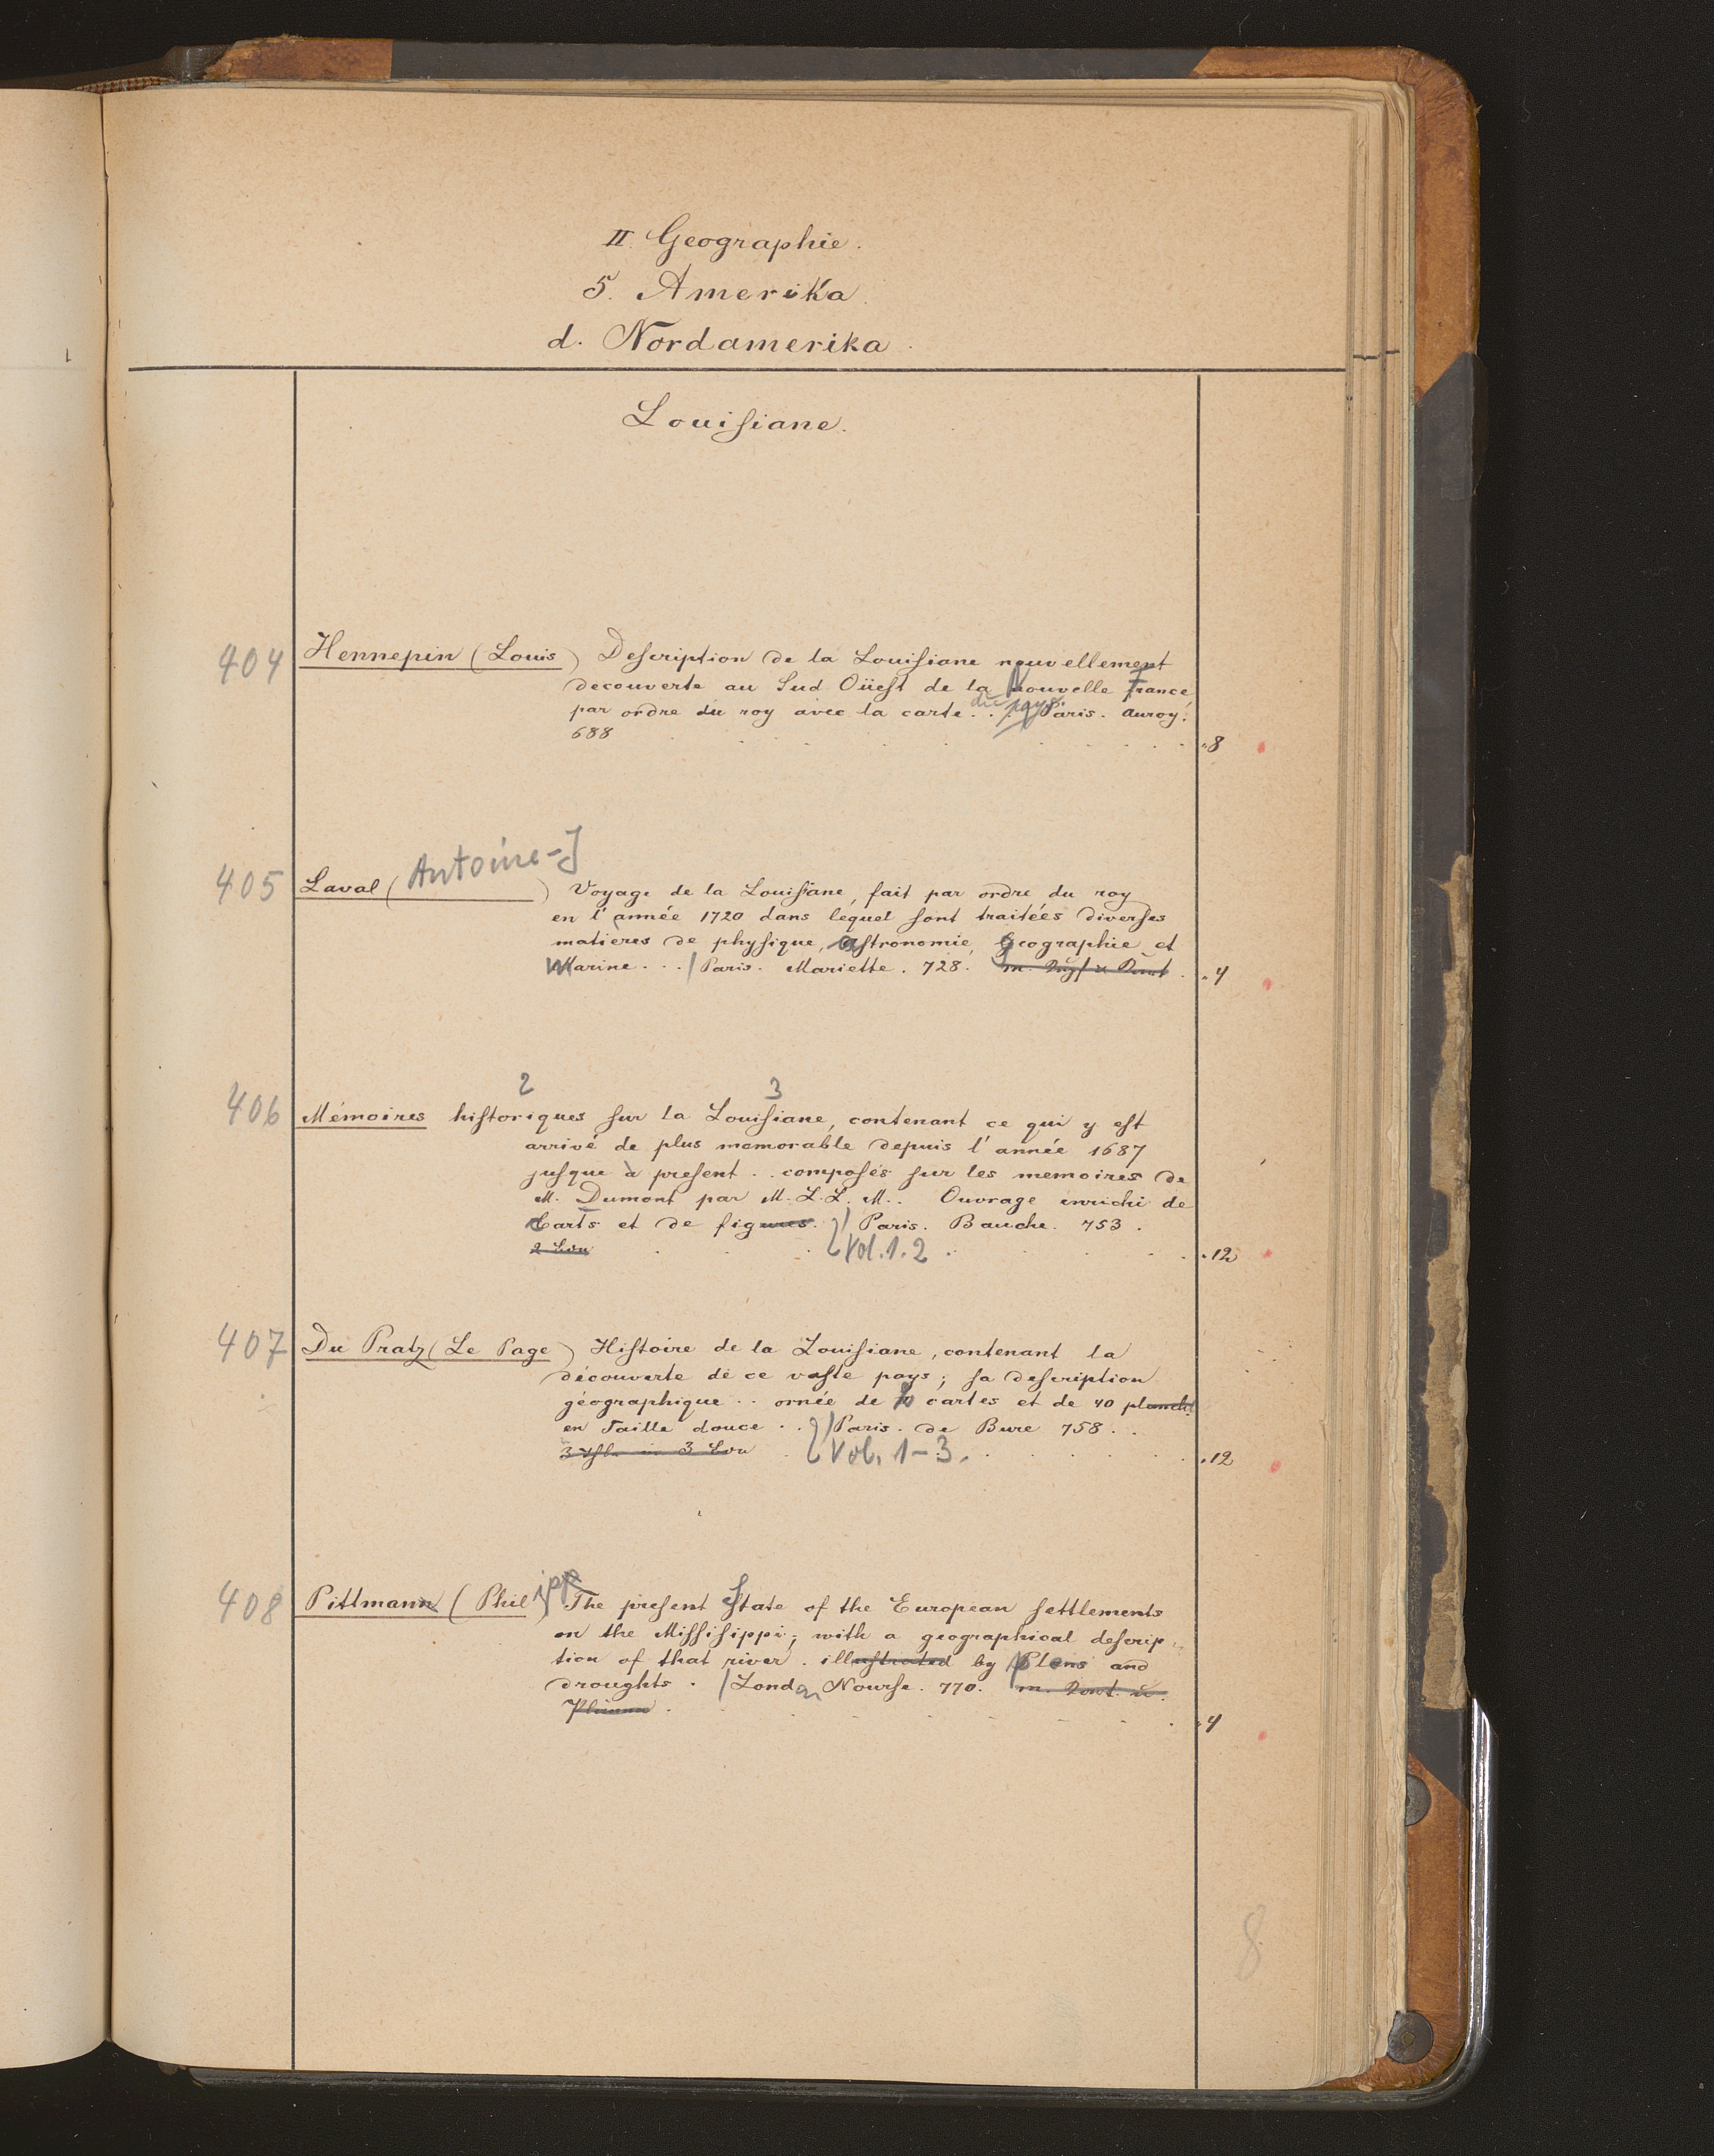 II. Geographie.
5. Amerika.
d. Nordamerika.
Louiſiane.
404 Hennepin (Louis) Deſcription de la Louiſiane nouvellement
decouverte au Sud Oüeſt de la Nouvelle France
par ordre du roy avec la carte . . du pays. / Paris. Auroy.
688 8
405 Laval (Antoine-J) Voyage de la Louiſiane, fait par ordre du roy
en l'année 1720 dans lequel ſont traitées diverſes
matieres de phyſique, aſtronomie, geographie et
Marine . . / Paris. Mariette. 728. 4
2 3
406 Mémoires hiſtoriques ſur la Louiſiane, contenant ce qui y eſt
arrivé de plus memorable depuis l'année 1687
juſque à preſent . . compoſés ſur les memoires de
M. Dumont par M. L. L. M. . Ouvrage enrichi de
Carts et de figures. / Paris. Bauche. 753.
Vol. 1. 2 12
407 Du Pratz (Le Page) Hiſtoire de la Louiſiane, contenant la
découverte de ce vaſte pays; ſa deſcription
géographique . . ornée de cartes et de 40 planch.
en Taille douce . . / Paris. de Bure 758. .
Vol. 1-3. 12
408 Pittmann (Philipp) The preſent State of the European ſettlements
on the Miſſiſippi; with a geographical deſcrip-
tion of that river. illuſtrated by Plans and
droughts. / London Nourſe. 770.
4
8